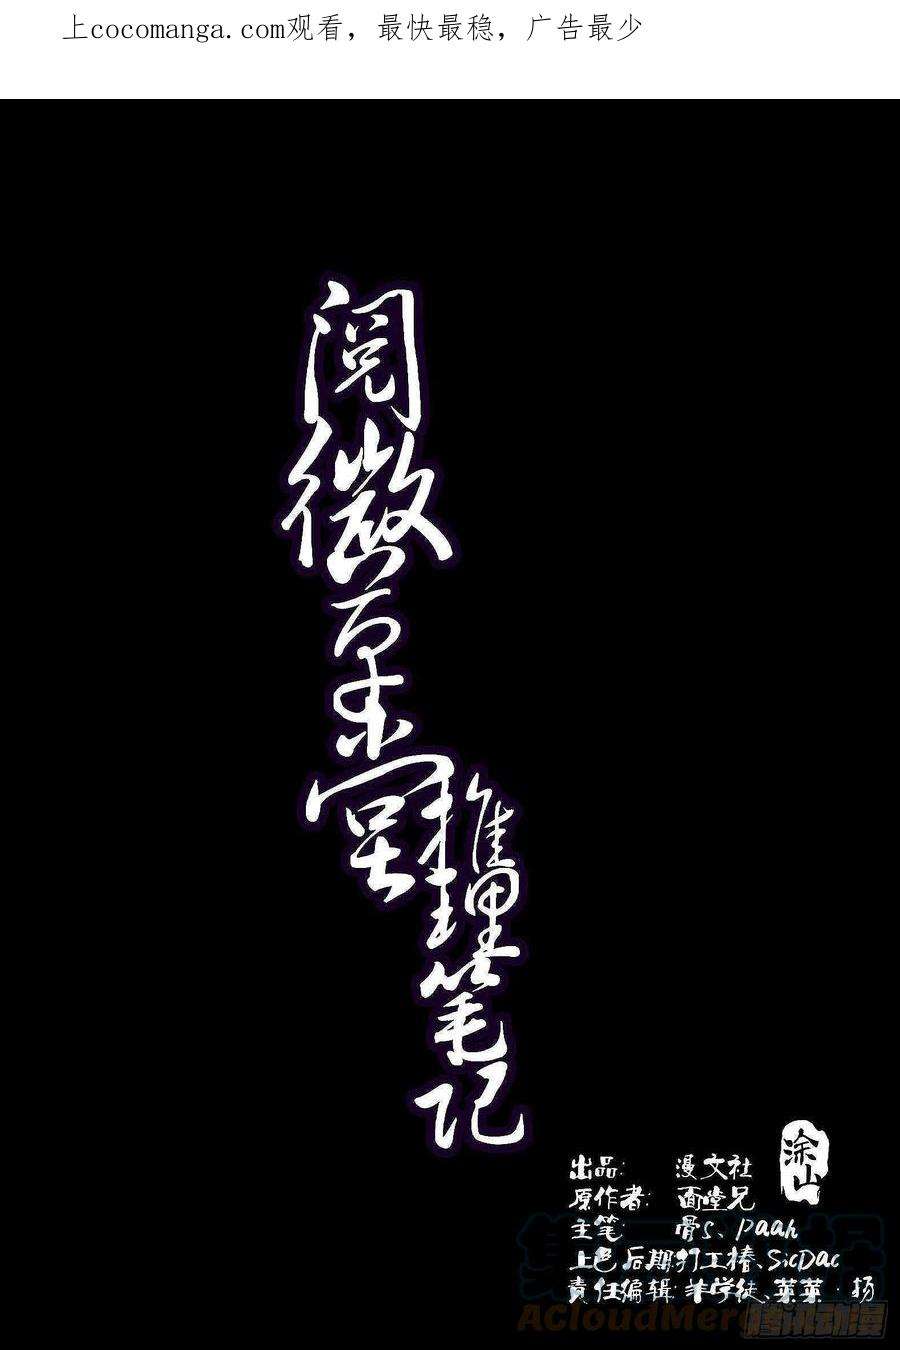 上cocomanga.com观看，最快最稳，广告最少
阅微草堂
推理笔记
涂山
出品: 漫文社
原作者: 面堂兄
主笔: 骨S、paah
上色后期:打工椿、SicDac
責任编辑:羊学徒、莱莱·杨
AcloudMerge
腾讯动漫